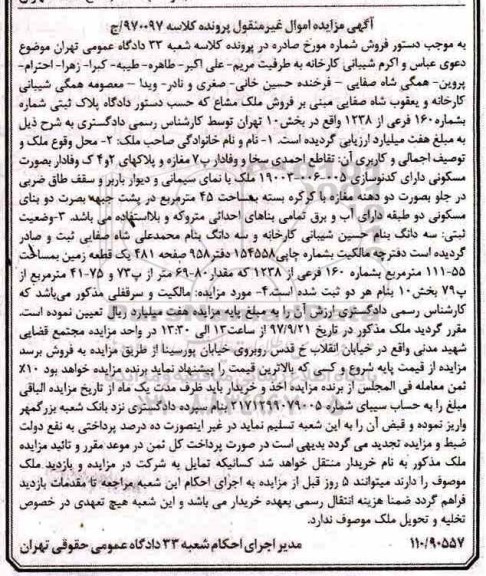 آگهی مزایده اموال غیرمنقول پرونده کلاسه ۹۷۰۰۹۷/ج
به موجب دستور فروش شماره مورخ صادره در پرونده کلاسه شعبه ۳۳ دادگاه عمومی تهران موضوع
دعوی عباس و اکرم شیبانی کارخانه به طرفیت مریم- علی اکبر- طاهره- طیبه- کبرا- زهرا- احترام-
پروین- همگی شاه صفایی – فرخنده حسین خانی- صغری و نادر- ویدا – معصومه همگی شیبانی
کارخانه و یعقوب شاه صفایی مبنی بر فروش ملک مشاع که حسب دستور دادگاه پلاک ثبتی شماره
بشماره ۱۶۰ فرعی از ۱۲۳۸ واقع در بخش ۱۰ تهران توسط کارشناس رسمی دادگستری به شرح ذیل
به مبلغ هفت میلیارد ارزیابی گردیده است. ۱- نام و نام خانوادگی صاحب ملک: ۲- محل وقوع ملک و
توصیف اجمالی و کاربری آن: تقاطع احمدی سخا و وفادار پ۷ مغازه و پلاکهای ۲و۴ ک وفادار بصورت
مسکونی دارای کدنوسازی ۰۰۵-۰۰۶-۱۹۰۰۳ ملک با نمای سیمانی و دیوار باربر و سقف طاق ضربی
در جلو بصورت دو دهنه مغازه با کرکره بسته بمساحت ۴۵ مترمربع در پشت جبهه بصرت دو بنای
مسکونی دو طبقه دارای آب و برق تمامی بناهای احداثی متروکه و بلااستفاده می باشد. ۳-وضعیت
ثبتی: سه دانگ بنام حسین شیبانی کارخانه و سه دانگ بنام محمدعلی شاه صفایی ثبت و صادر
گردیده است دفترچه مالکیت بشماره چاپی۱۵۴۵۵۸ دفتر۹۵۸ صفحه ۴۸۱ یک قطعه زمین بمساحت
۵۵-۱۱۱ مترمربع بشماره ۱۶۰ فرعی از ۱۲۳۸ که مقدار ۸۰-۶۹ متر از پ۷۳ و ۷۵-۴۱ مترمربع از
پ۷۹ بخش ۱۰ بنام هر دو ثبت شده است.۴- مورد مزایده: مالکیت و سرقفلی مذکور می‌باشد که
کارشناس رسمی دادگستری ارزش آن را به مبلغ پایه مزایده هفت میلیارد ریال تعیین نموده است.
مقرر گردید ملک مذکور در تاریخ ۹۷/۹/۲۱ از ساعت۱۳ الی ۱۳:۳۰ در واحد مزایده مجتمع قضایی
شهید مدنی واقع در خیابان انقلاب خ قدس روبروی خیابان پورسینا از طریق مزایده به فروش برسد
مزایده از قیمت پایه شروع و کسی که بالاترین قیمت را پیشنهاد نماید برنده مزایده خواهد بود ۱۰٪
ثمن معامله فی المجلس از برنده مزایده اخذ و خریدار باید ظرف مدت یک ماه از تاریخ مزایده الباقی
مبلغ را به حساب سیبای شماره ۲۱۷۱۲۹۰۷۱۰۰۵ بنام سپرده دادگستری نزد بانک شعبه بزرگمهر
واریز نموده و قبض آن را به این شعبه تسلیم نماید در غیر اینصورت ده درصد پرداختی به نفع دولت
ضبط و مزایده تجدید می گردد بدیهی است در صورت پرداخت کل ثمن در موعد مقرر و تائید مزایده
ملک مذکور به نام خریدار منتقل خواهد شد کسانیکه تمایل به شرکت در مزایده و بازدید ملک
موصوف را دارند میتوانند ۵ روز قبل از مزایده به اجرای احکام این شعبه مراجعه تا مقدمات بازدید
فراهم گردد ضمنا هزینه انتقال رسمی بعهده خریدار می باشد و این شعبه هیچ تعهدی در خصوص
تخلیه و تحویل ملک موصوف ندارد.
۱۱۰/۹۰۵۵۷ مدیر اجرای احکام شعبه ۳۳ دادگاه عمومی حقوقی تهران